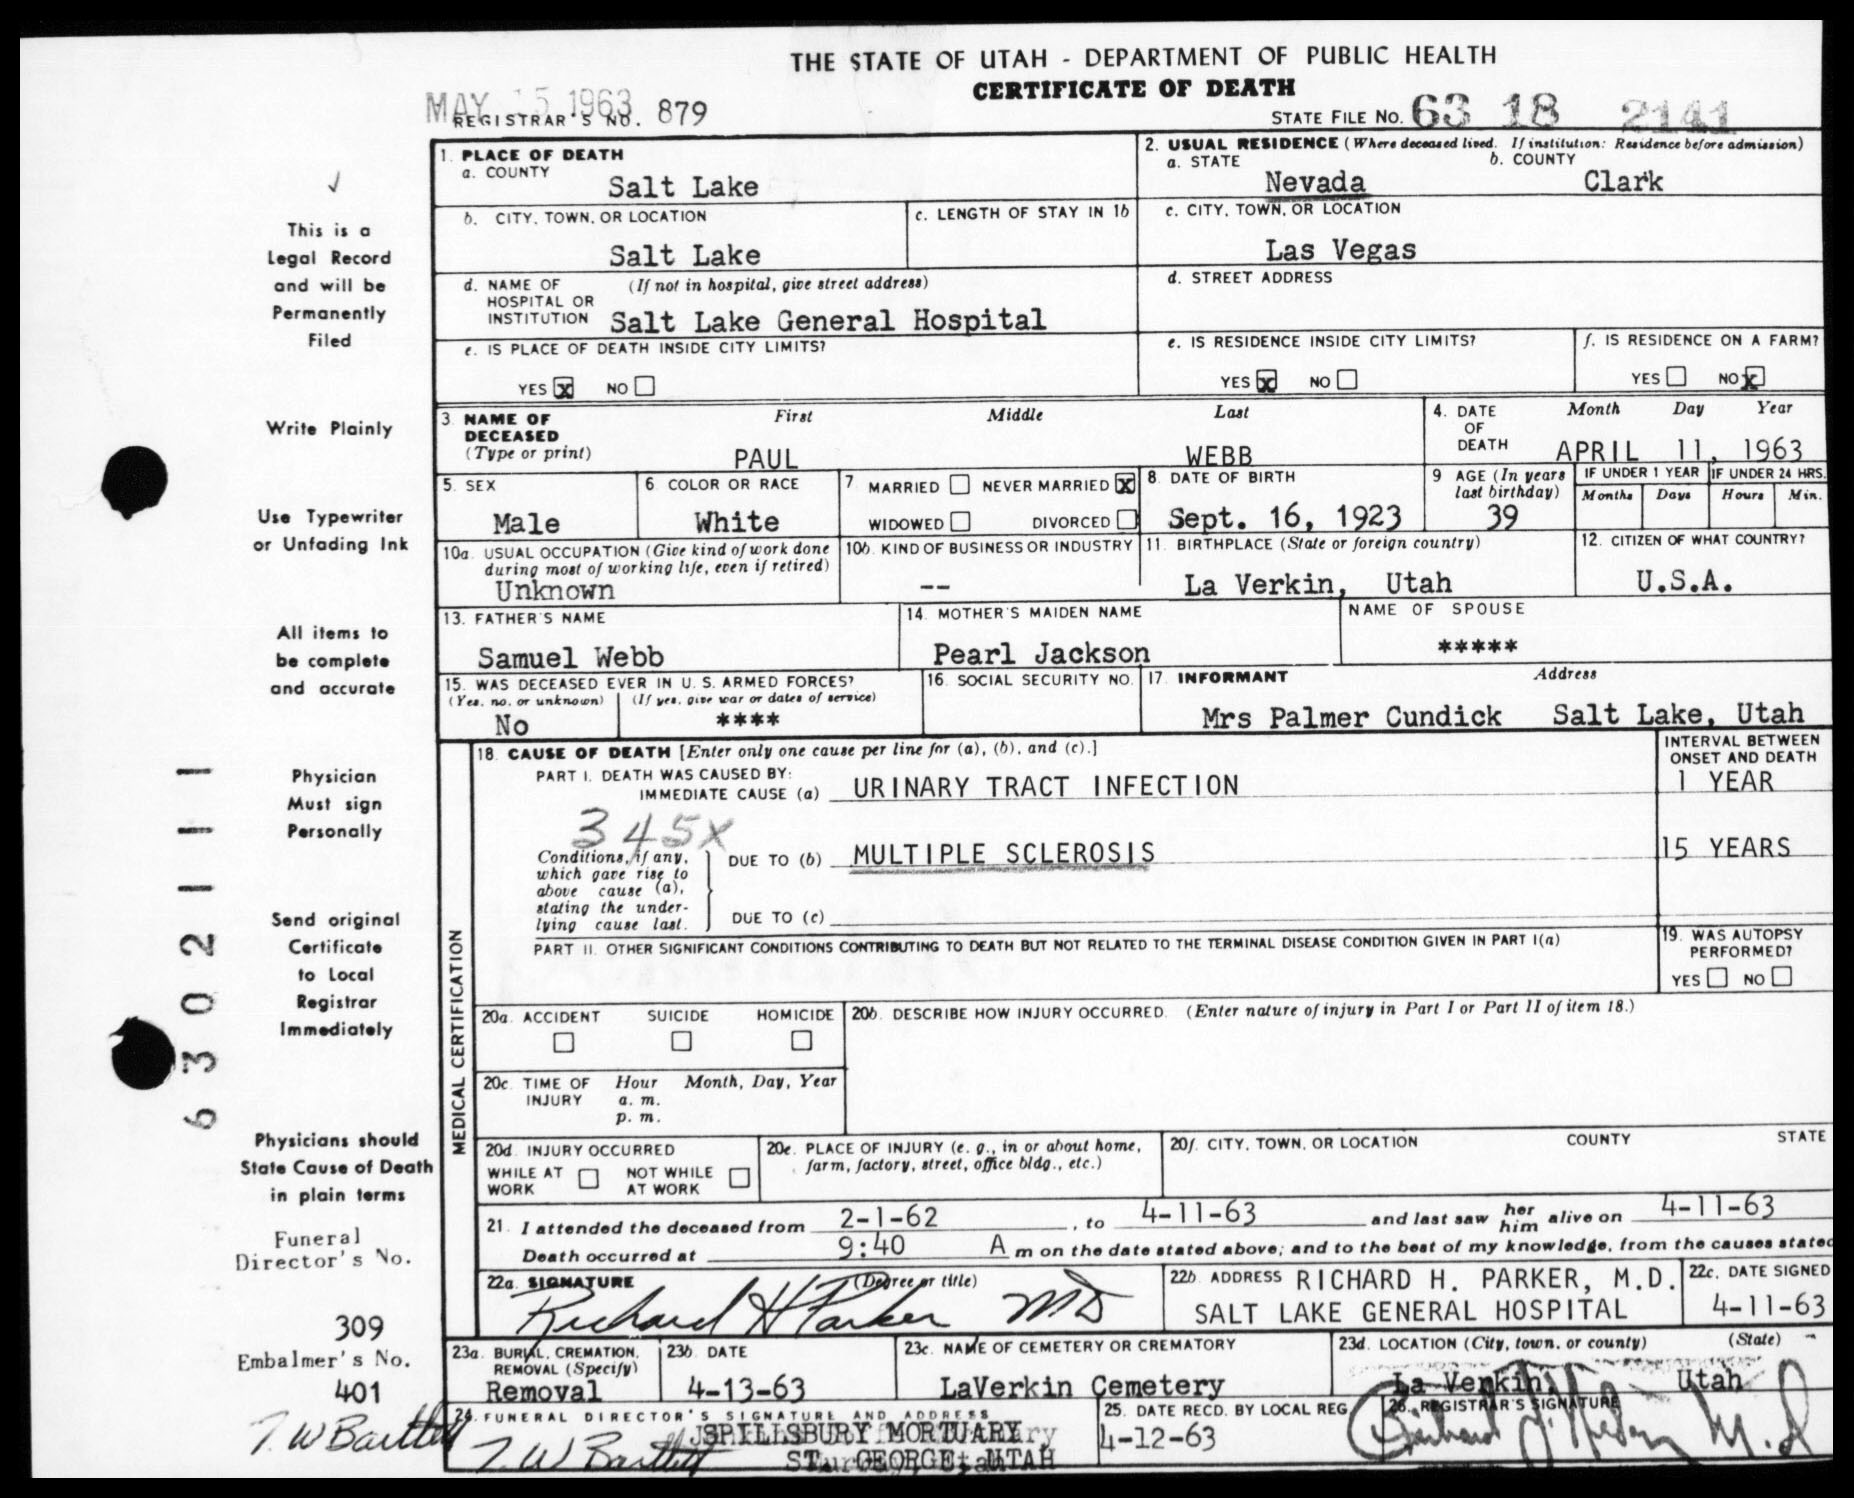 THE STATE OF UTAH - DEPARTMENT OF PUBLIC HEALTH
CERTIFICATE OF DEATH
MAY 15 1963
REGISTRAR'S NO. 879
STATE FILE NO. 63 18 2141
This is a
Legal Record
and will be
Permanently
Filed
Write Plainly
Use Typewriter
or Unfading Ink
All items to
be complete
and accurate
Physician
Must sign
Personally
Send original
Certificate
to Local
Registrar
Immediately
Physicians should
State Cause of Death
in plain terms
Funeral
Director's No.
309
Embalmer's No.
401
T. W Bartlett
63021111
1. PLACE OF DEATH
a. COUNTY
Salt Lake
2. USUAL RESIDENCE (Where deceased lived. If institution: Residence before admission)
a. STATE Nevada
b. COUNTY Clark
b. CITY, TOWN, OR LOCATION
Salt Lake
c. LENGTH OF STAY IN 1b
c. CITY, TOWN, OR LOCATION
Las Vegas
d. NAME OF HOSPITAL OR INSTITUTION (If not in hospital, give street address)
Salt Lake General Hospital
d. STREET ADDRESS
e. IS PLACE OF DEATH INSIDE CITY LIMITS?
YES x NO
e. IS RESIDENCE INSIDE CITY LIMITS?
YES x NO
f. IS RESIDENCE ON A FARM?
YES NO x
3. NAME OF DECEASED (Type or print)
First Middle Last
PAUL WEBB
4. DATE OF DEATH
Month Day Year
APRIL 11, 1963
5. SEX
Male
6. COLOR OR RACE
White
7. MARRIED NEVER MARRIED X
WIDOWED DIVORCED
8. DATE OF BIRTH
Sept. 16, 1923
9 AGE (In years last birthday)
39
IF UNDER 1 YEAR
Months Days
IF UNDER 24 HRS.
Hours Min.
10a. USUAL OCCUPATION (Give kind of work done during most of working life, even if retired)
Unknown
10b. KIND OF BUSINESS OR INDUSTRY
--
11. BIRTHPLACE (State or foreign country)
La Verkin, Utah
12. CITIZEN OF WHAT COUNTRY?
U.S.A.
13. FATHER'S NAME
Samuel Webb
14. MOTHER'S MAIDEN NAME
Pearl Jackson
NAME OF SPOUSE
*****
15. WAS DECEASED EVER IN U.S. ARMED FORCES?
(Yes, no, or unknown) (If yes, give war or dates of service)
No ****
16. SOCIAL SECURITY NO.
17. INFORMANT Address
Mrs Palmer Cundick Salt Lake, Utah
MEDICAL CERTIFICATION
18. CAUSE OF DEATH [Enter only one cause per line for (a), (b), and (c).]
INTERVAL BETWEEN ONSET AND DEATH
PART I. DEATH WAS CAUSED BY:
IMMEDIATE CAUSE (a) URINARY TRACT INFECTION 1 YEAR
345X
Conditions, if any, which gave rise to above cause (a), stating the underlying cause last.
DUE TO (b) MULTIPLE SCLEROSIS 15 YEARS
DUE TO (c)
PART II. OTHER SIGNIFICANT CONDITIONS CONTRIBUTING TO DEATH BUT NOT RELATED TO THE TERMINAL DISEASE CONDITION GIVEN IN PART I(a)
19. WAS AUTOPSY PERFORMED?
YES NO
20a. ACCIDENT SUICIDE HOMICIDE
20b. DESCRIBE HOW INJURY OCCURRED. (Enter nature of injury in Part I or Part II of item 18.)
20c. TIME OF INJURY Hour Month, Day, Year
a. m.
p. m.
20d. INJURY OCCURRED
WHILE AT WORK NOT WHILE AT WORK
20e. PLACE OF INJURY (e. g., in or about home, farm, factory, street, office bldg., etc.)
20f. CITY, TOWN, OR LOCATION COUNTY STATE
21. I attended the deceased from 2-1-62, to 4-11-63 and last saw her him alive on 4-11-63
Death occurred at 9:40 A m on the date stated above; and to the best of my knowledge, from the causes stated
22a. SIGNATURE (Degree or title)
Richard H Parker MD
22b. ADDRESS RICHARD H. PARKER, M.D.
SALT LAKE GENERAL HOSPITAL
22c. DATE SIGNED
4-11-63
23a. BURIAL, CREMATION, REMOVAL (Specify)
Removal
23b. DATE
4-13-63
23c. NAME OF CEMETERY OR CREMATORY
LaVerkin Cemetery
23d. LOCATION (City, town, or county) (State)
La Verkin, Utah
24. FUNERAL DIRECTOR'S SIGNATURE AND ADDRESS
T. W Bartlett
SPILLSBURY MORTUARY
ST. GEORGE, UTAH
25. DATE RECD. BY LOCAL REG
4-12-63
26. REGISTRAR'S SIGNATURE
M.D